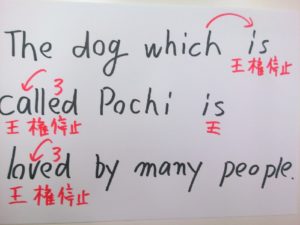 The dog which is
王権停止
3
called Pochi is
王権停止 王
3
loved by many people.
王権停止